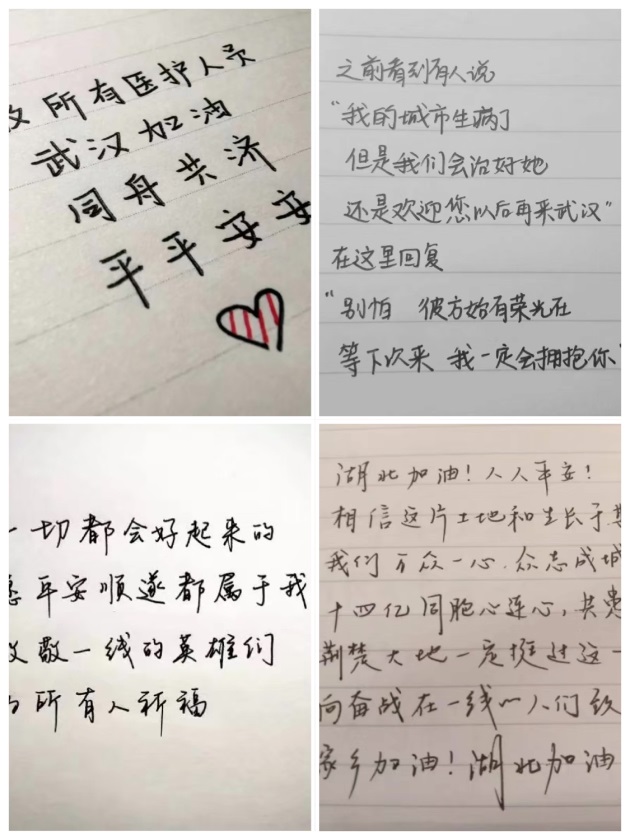 所有医护人员
武汉加油
同舟共济
平平安安
之前看到有人说
“我的城市生病了
但是我们会治好她
还是欢迎您以后再来武汉”
在这里回复
“别怕 彼方始有荣光在
等下次来 我一定会拥抱你”
一切都会好起来的
愿平安顺遂都属于我
致敬一线的英雄们
为所有人祈福
湖北加油！人人平安！
相信这片土地和生长于
我们万众一心.众志成城
十四亿同胞心连心，共患
荆楚大地一定挺过这一
向奋战在一线的人们致
家乡加油！湖北加油